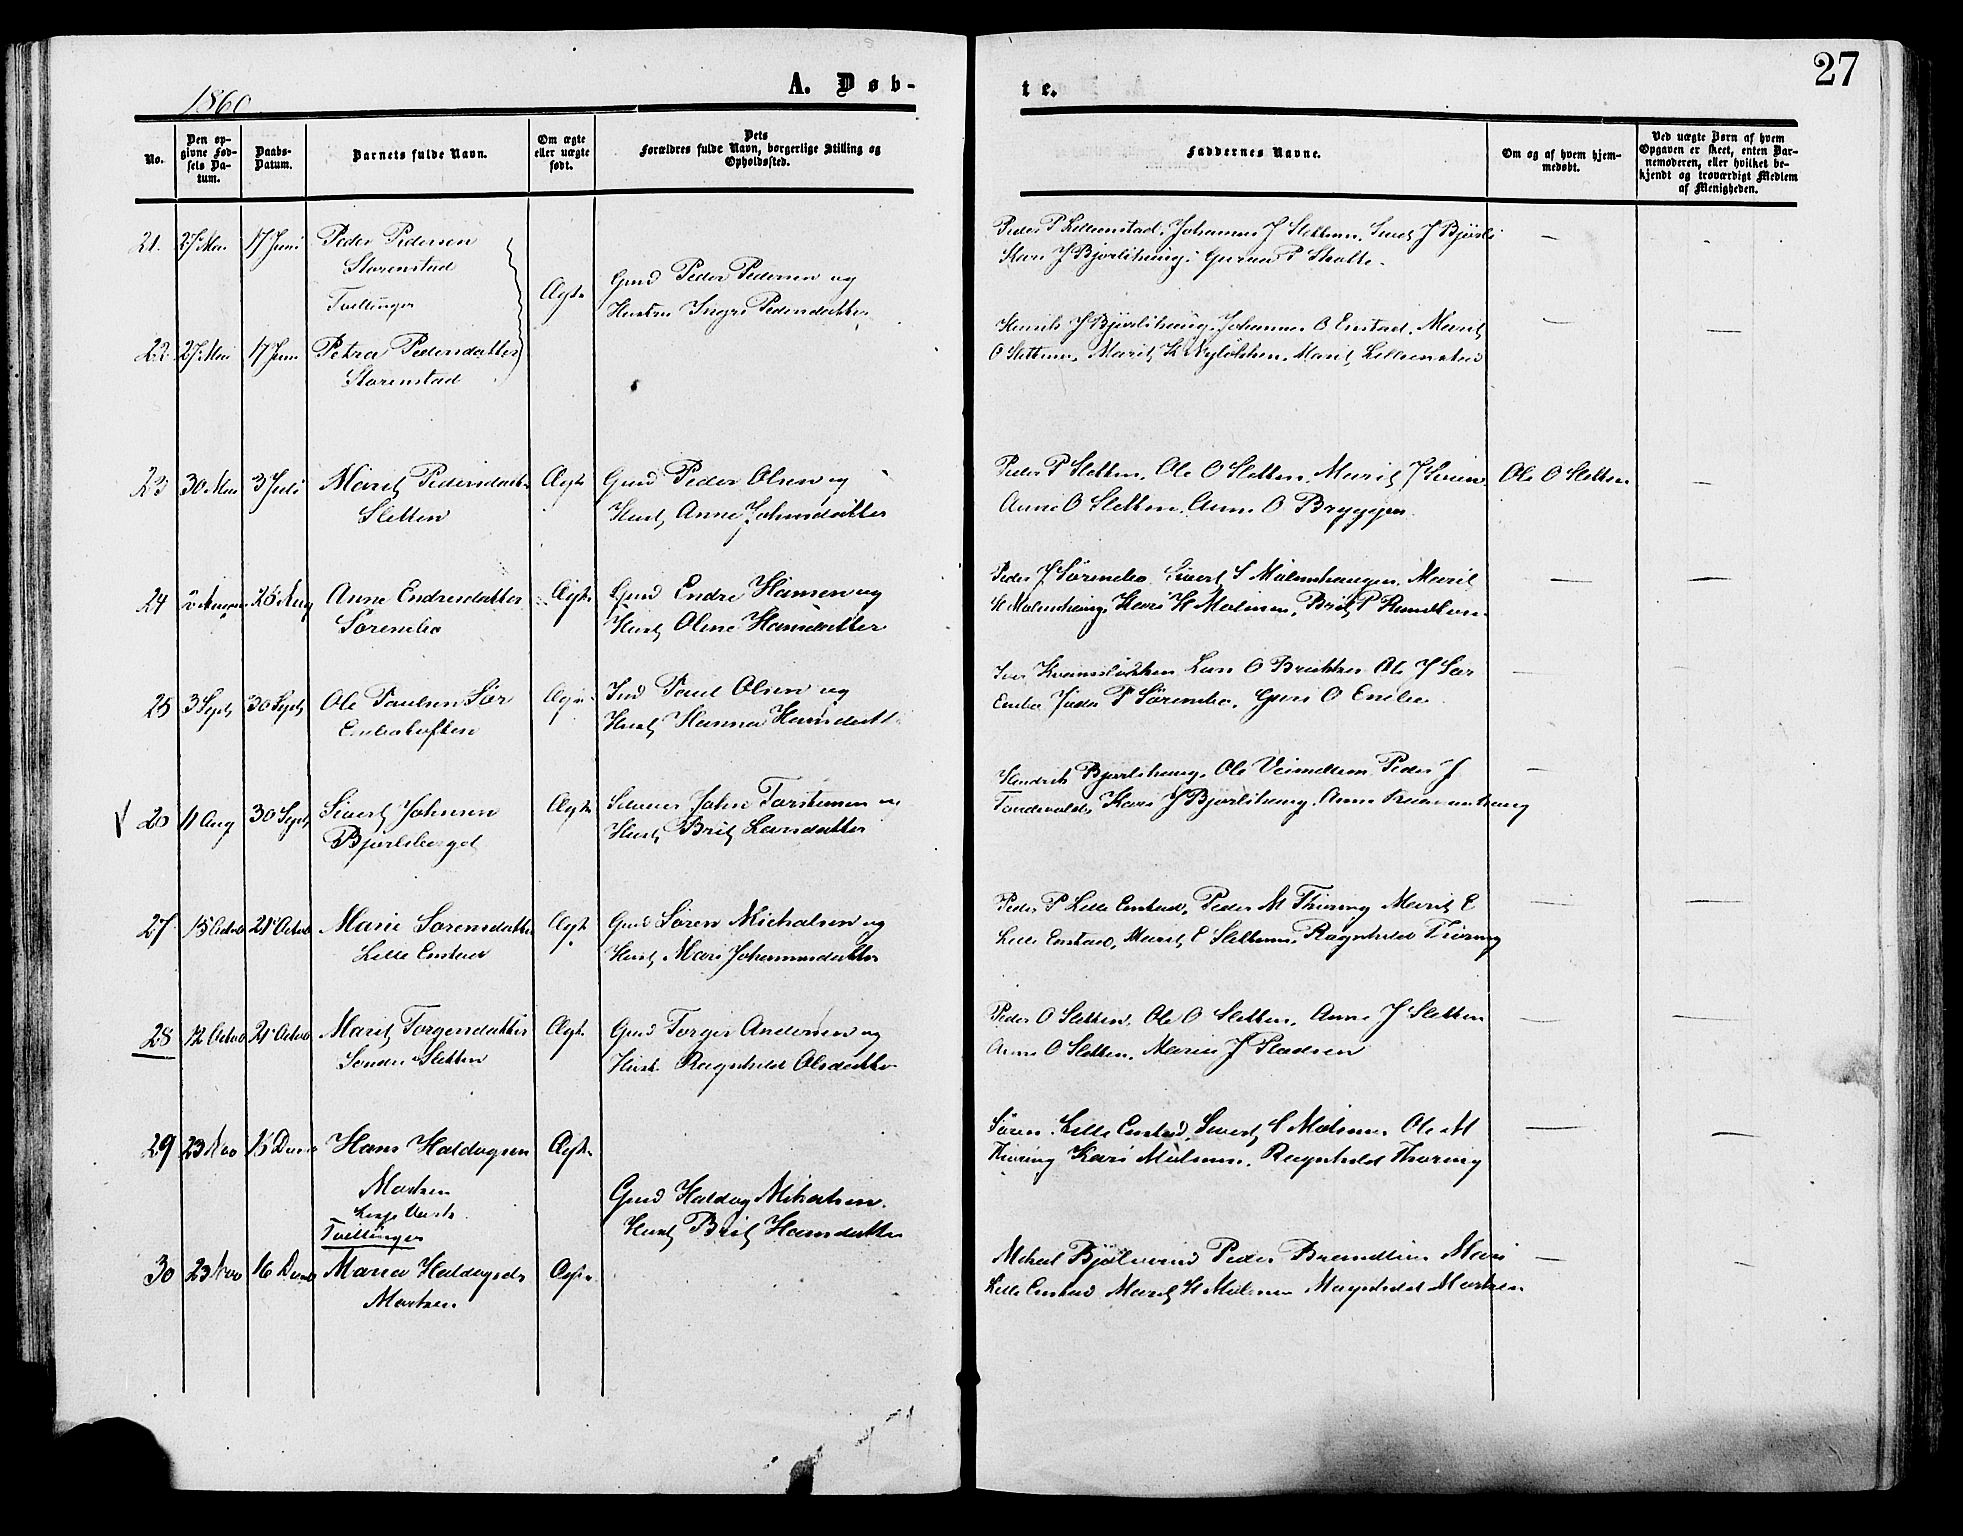 27
1860
A. Døb-
te.
No.
Den op-
givne Fød-
sels Da-
tum.
Daabs-
Datum.
Barnets fulde Navn.
Om ægte
eller uægte
født.
Dets
Forældres fulde Navn, borgerlige Stilling og
Opholdssted.
Faddernes Navne.
Om og af hvem hjem-
medøbt.
Ved uægte Børn af hvem
Opgaven er skeet, enten Bar-
nemoderen, eller hvilket be-
kjendt og troværdigt Medlem
af Menigheden.
21. 27 Mai 17 Juni Peder Pedersen
Storenstad
Tvillinger
Ægte
Gmd Peder Pedersen og
Hustru Ingri Pedersdatter
Peder P Lilleenstad, Johannes J Slettum, Sivert J Bjørli
Kari J Bjørlihaug, P
— —
22. 27 Mai 17 Juni Petra Pedersdatter
Storenstad
Henrik J Bjørlihaug, Johannes O Enstad, Marit
O Slettum, Marit K Nyløkken, Marit Lilleenstad
— —
23 30 Mai 3 Juli Marit Pedersdatt
Sletten
Ægte
Gmd Peder Olsen og
Hust Anne Johnsdatter
Peder P Sletten, Ole O Sletten, Marit J
Anne O Sletten, Anne O Bryggen
Ole O Sletten —
24 26 Aug Anne Endresdatter
Sørenebo
Ægte
Gmd Endre Hansen og
Hust Oline Hansdatter
Peder J Sørenebo, Sivert S Molmshaugen, Marit
H Molmshaug, Kari H Molmen, Brit P
— —
25 3 Sept 30 Sept Ole Paulsen Sør
Enbotuften
Ægte
Ind Paul Olsen og
Hust Hanna Hansdatt
Lars O Brukken Ole J Sør
Enbo P Sørenebo, Guri O Enebo
— —
V 26 11 Aug 30 Sept Sivert Johnsen
Bjorlsberget
Ægte
John Torstensen og
Hust Brit Larsdatter
Hendrik Bjørlihaug, Ole Peder J
Tandevolds, Kari J Bjørlihaug, Anne
—
27 15 Octob 21 Octob Marie Sørensdatter
Lille Enstad
Ægte
Gmd Søren Michalsen og
Hust Mari Johannesdatter
Peder P Lille Enstad, Peder M Thøring Marit E
Lille Enstad, Marit E Slettum, Ragnhild Thøring
— —
28 12 Octob 21 Octob Marit Torgersdatter
Søndre Sletten
Ægte
Gmd Torger Andersen og
Hust Ragnhild Olsdatter
Peder O Sletten, Ole O Sletten, Anne J Sletten
Anne O Sletten, Marie J Stadsen
— —
29 23 Nov Hans Haldogsen
Mortsen
Tvillinger
Ægte
Gmd Haldog Mikalsen
Hust Brit Hansdatter
Søren Lille Enstad, Sivert E Molmen Ole M
Thøring Kari Molmen, Ragnhild Thøring
— —
30 23 Nov 16 Decemb Maria Haldogsdr
Mortsen
Ægte
Mikael Peder Brandlien Mari
Lille Enstad Marit H Molmen Magnhild Mortsen
— —